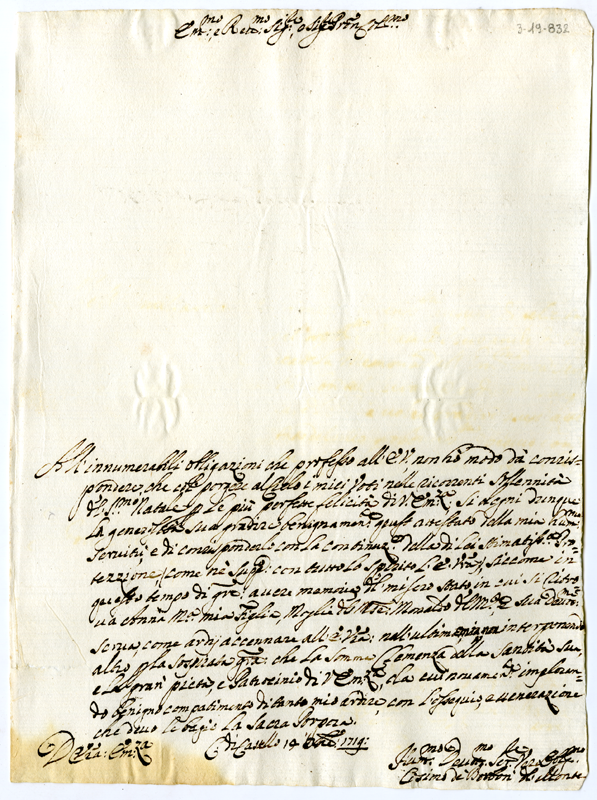 3-19-832
Em.mo e Rev.mo Sig.re Sig.re P.ron Col.mo
All'innumerabili obligazioni che professo all'E.V. non hò modo da corris-
pondere, che col porgere al Cielo i miei Voti nelle ricorrenti Solennità
del S.mo Natale p. le più perfette felicità di V. Em.za Si degni dunque
La generosità sua gradire benignamen.te quest'attestato della mia
Servitù, e di corrispondere con la continuaz.e della di Lei stimatiss.a Pro-
tezzione, come ne supp.co con tutto lo Spirito L'E. Vra, Siccome in
questo tempo di gra. avere memoria del misero Stato in cui si ritro-
va Anna M.a mia figlia, Moglie del
serva, come ardij accennare all'E. Vra: nell'ultima mia non
altro p. la sospirata gra: che La Somma Clemenza della Santità Sua,
e La gran pietà e Patrocinio di V. Em.za, da cui novamen.te imploran-
do benigno compatimento di tanto mio ardire, con L'ossequio, e venerazione
che devo le bagio La Sacra Porpora.
D. Vra: Em.za C. di Castello 19 Xbre: 1719:
Hum.mo Dev.mo Ser.re
Cosimo de Borbon' del Monte